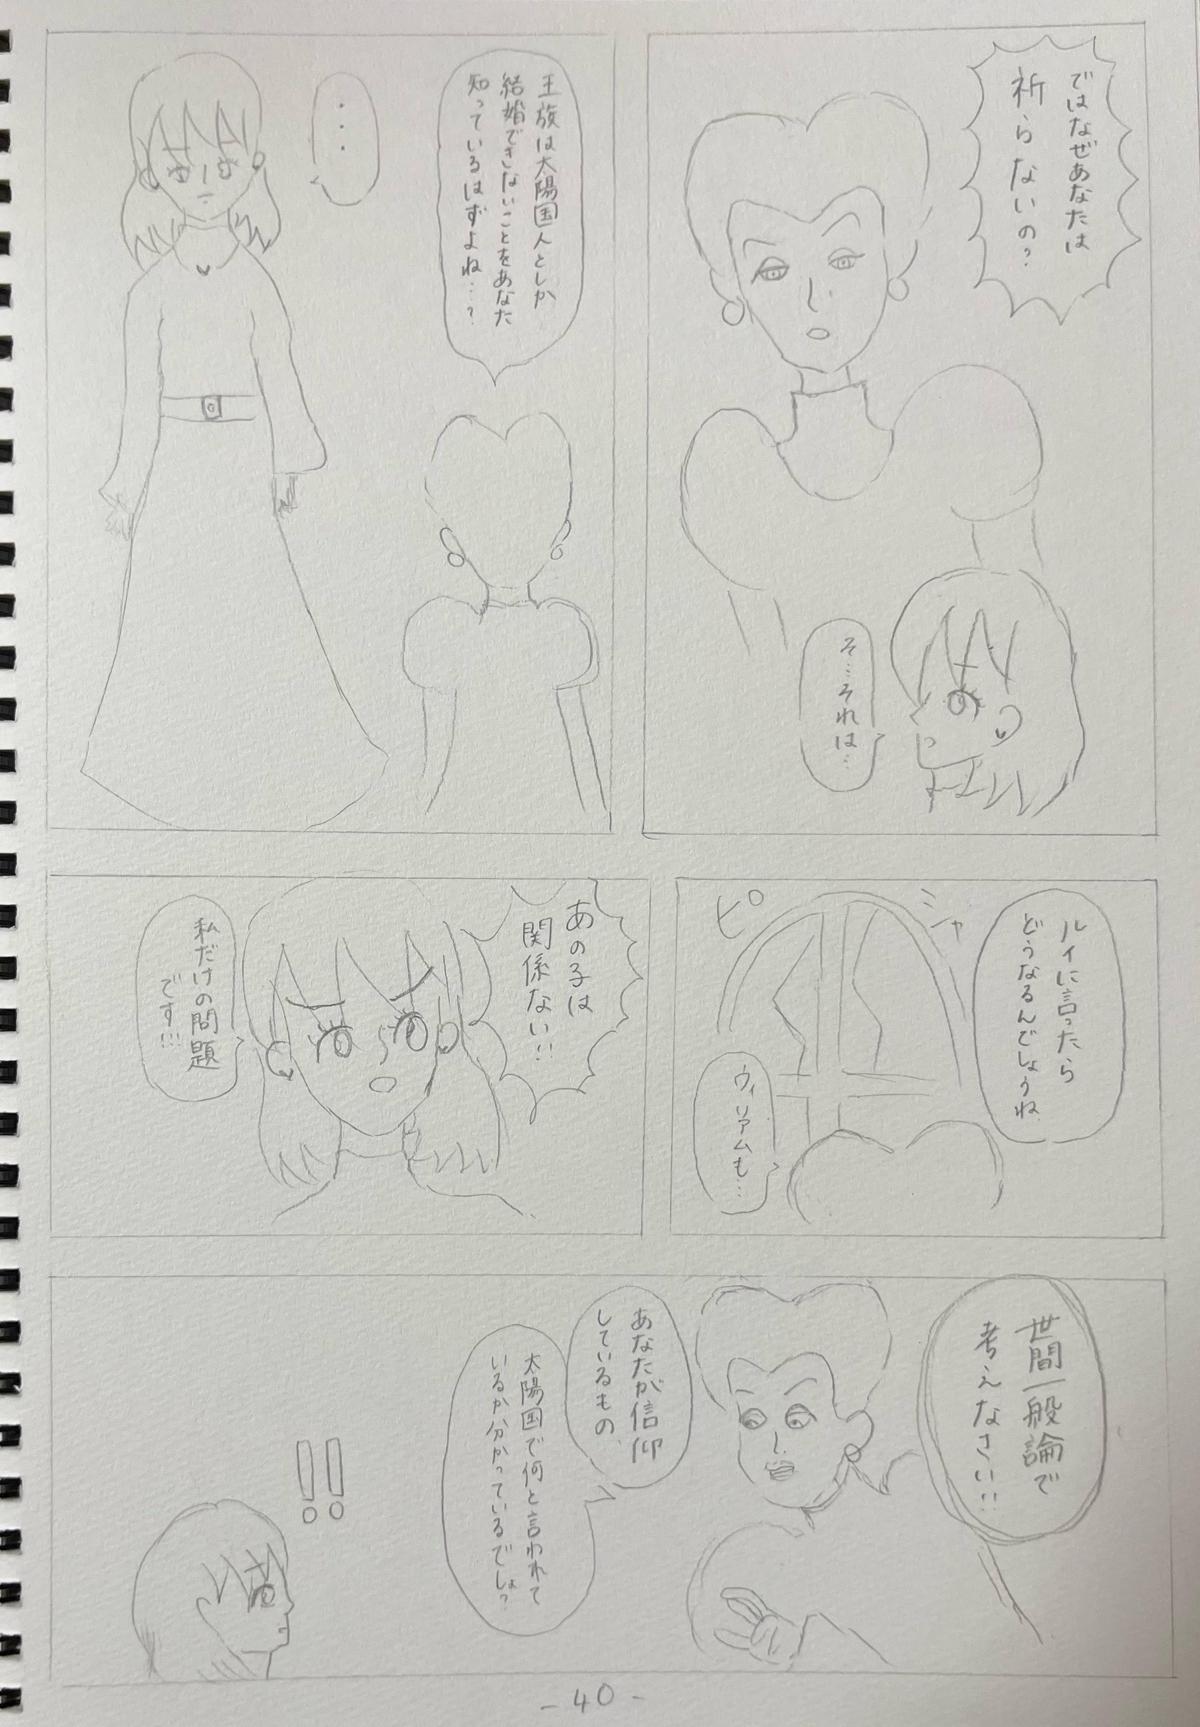 ではなぜあなたは
祈らないの?
そ…それは…
王族は太陽国人としか
結婚できないことをあなた
知っているはずよね…?
・・・
ルイに言ったら
どうなるんでしょうね
ピシャ
ウィリアムも…
あの子は
関係ない!!
私だけの問題
です!!!
世間一般論で
考えなさい!!
あなたが信仰
しているもの、
太陽国で何と言われて
いるか分かっているでしょ?
!!
-40-